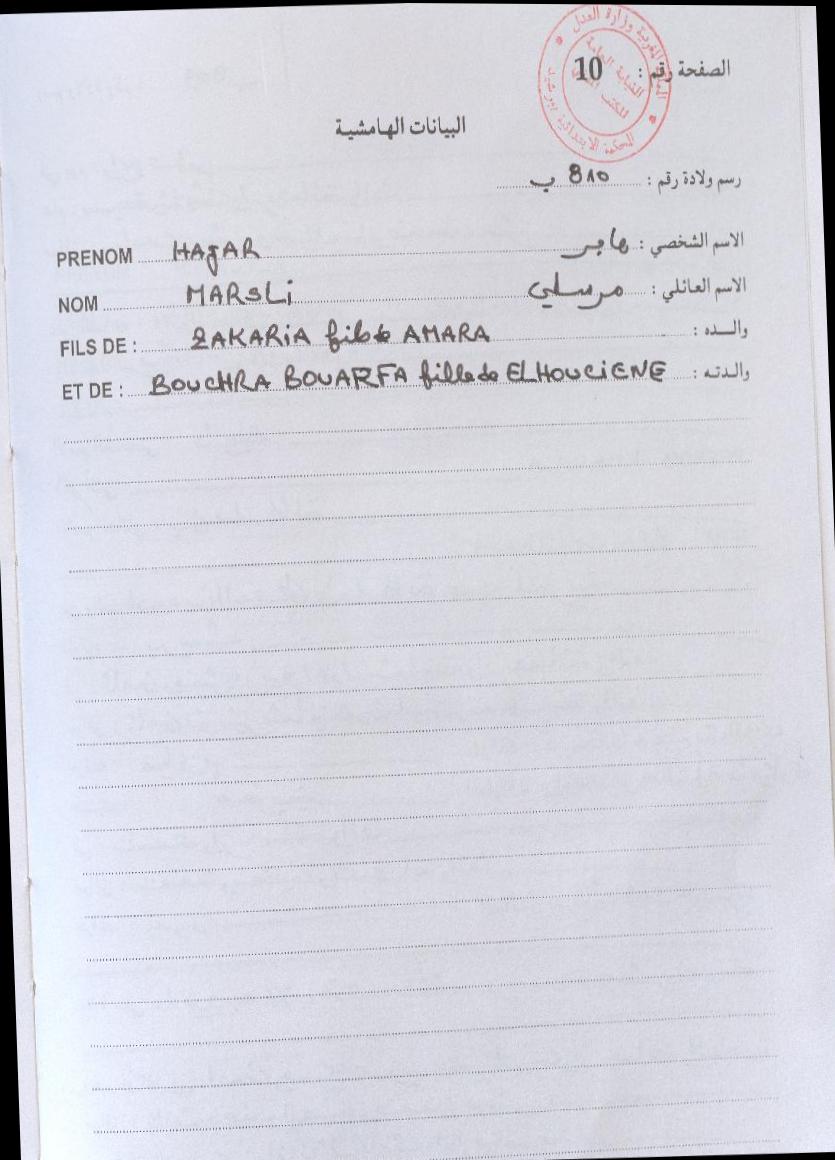 الصفحة رقم : 10
المملكة المغربية وزارة العدل
النيابة العامة
المحكمة الابتدائية ببرشيد
البيانات الهامشية
رسم ولادة رقم : 810 ب
PRENOM HAJAR هاجر الاسم الشخصي :
NOM MARSLi مرسلي الاسم العائلي :
FILS DE : ZAKARiA fils de AMARA والـــده :
ET DE : BOUCHRA BOUARFA fille de ELHOUCiENE والـدتـه :